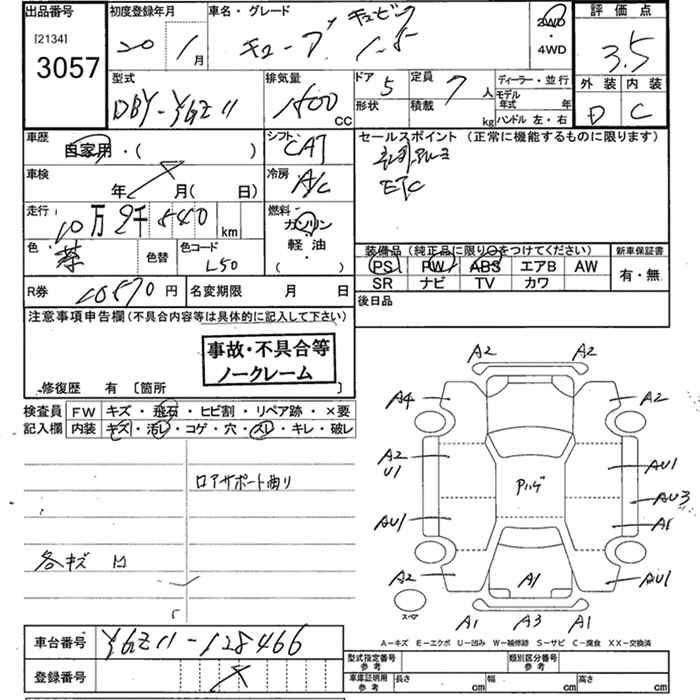 出品番号 [2134] 3057
初度登録年月 20年 1月
車名・グレード キューブ キュービック 1.5
2WD ・ 4WD
評価点 3.5
外装 D 内装 C
型式 DBY-YGZ11
排気量 1500 CC
ドア 5 形状
定員 7 人 積載 kg
ディーラー・並行
モデル年式 年
ハンドル 左・右
車歴 自家用・( )
シフト CAT
セールスポイント (正常に機能するものに限ります)
ETC
車検 年 月( 日)
冷房 A/C
走行 10万2千840km
燃料 ガソリン 軽・油 ( )
色 茶 色替 色コード L50
装備品 (純正品に限り○をつけてください)
PS PW ABS エアB AW
SR ナビ TV カワ
新車保証書 有・無
R券 10570円
名変期限 月 日
後日品
注意事項申告欄(不具合内容等は具体的に記入して下さい)
事故・不具合等
ノークレーム
修復歴 有 〔箇所 〕
検査員 FW キズ・飛石・ヒビ割・リペア跡・×要
記入欄 内装 キズ・汚レ・コゲ・穴・スレ・キレ・破レ
ロアサポート曲り
各キズ 凹
A2 A2
A4 A2
A2 U1 AU1
Pハゲ
AU3
AU1 A1
A2 A1 AU1
スペア
A1 A3 A1
A－キズ E－エクボ U－凹み W－補修跡 S－サビ C－腐食 XX－交換済
車台番号 YGZ11-128466
登録番号
型式指定番号 参考 類別区分番号 参考
車庫証明用 参考 長さ cm 幅 cm 高さ cm